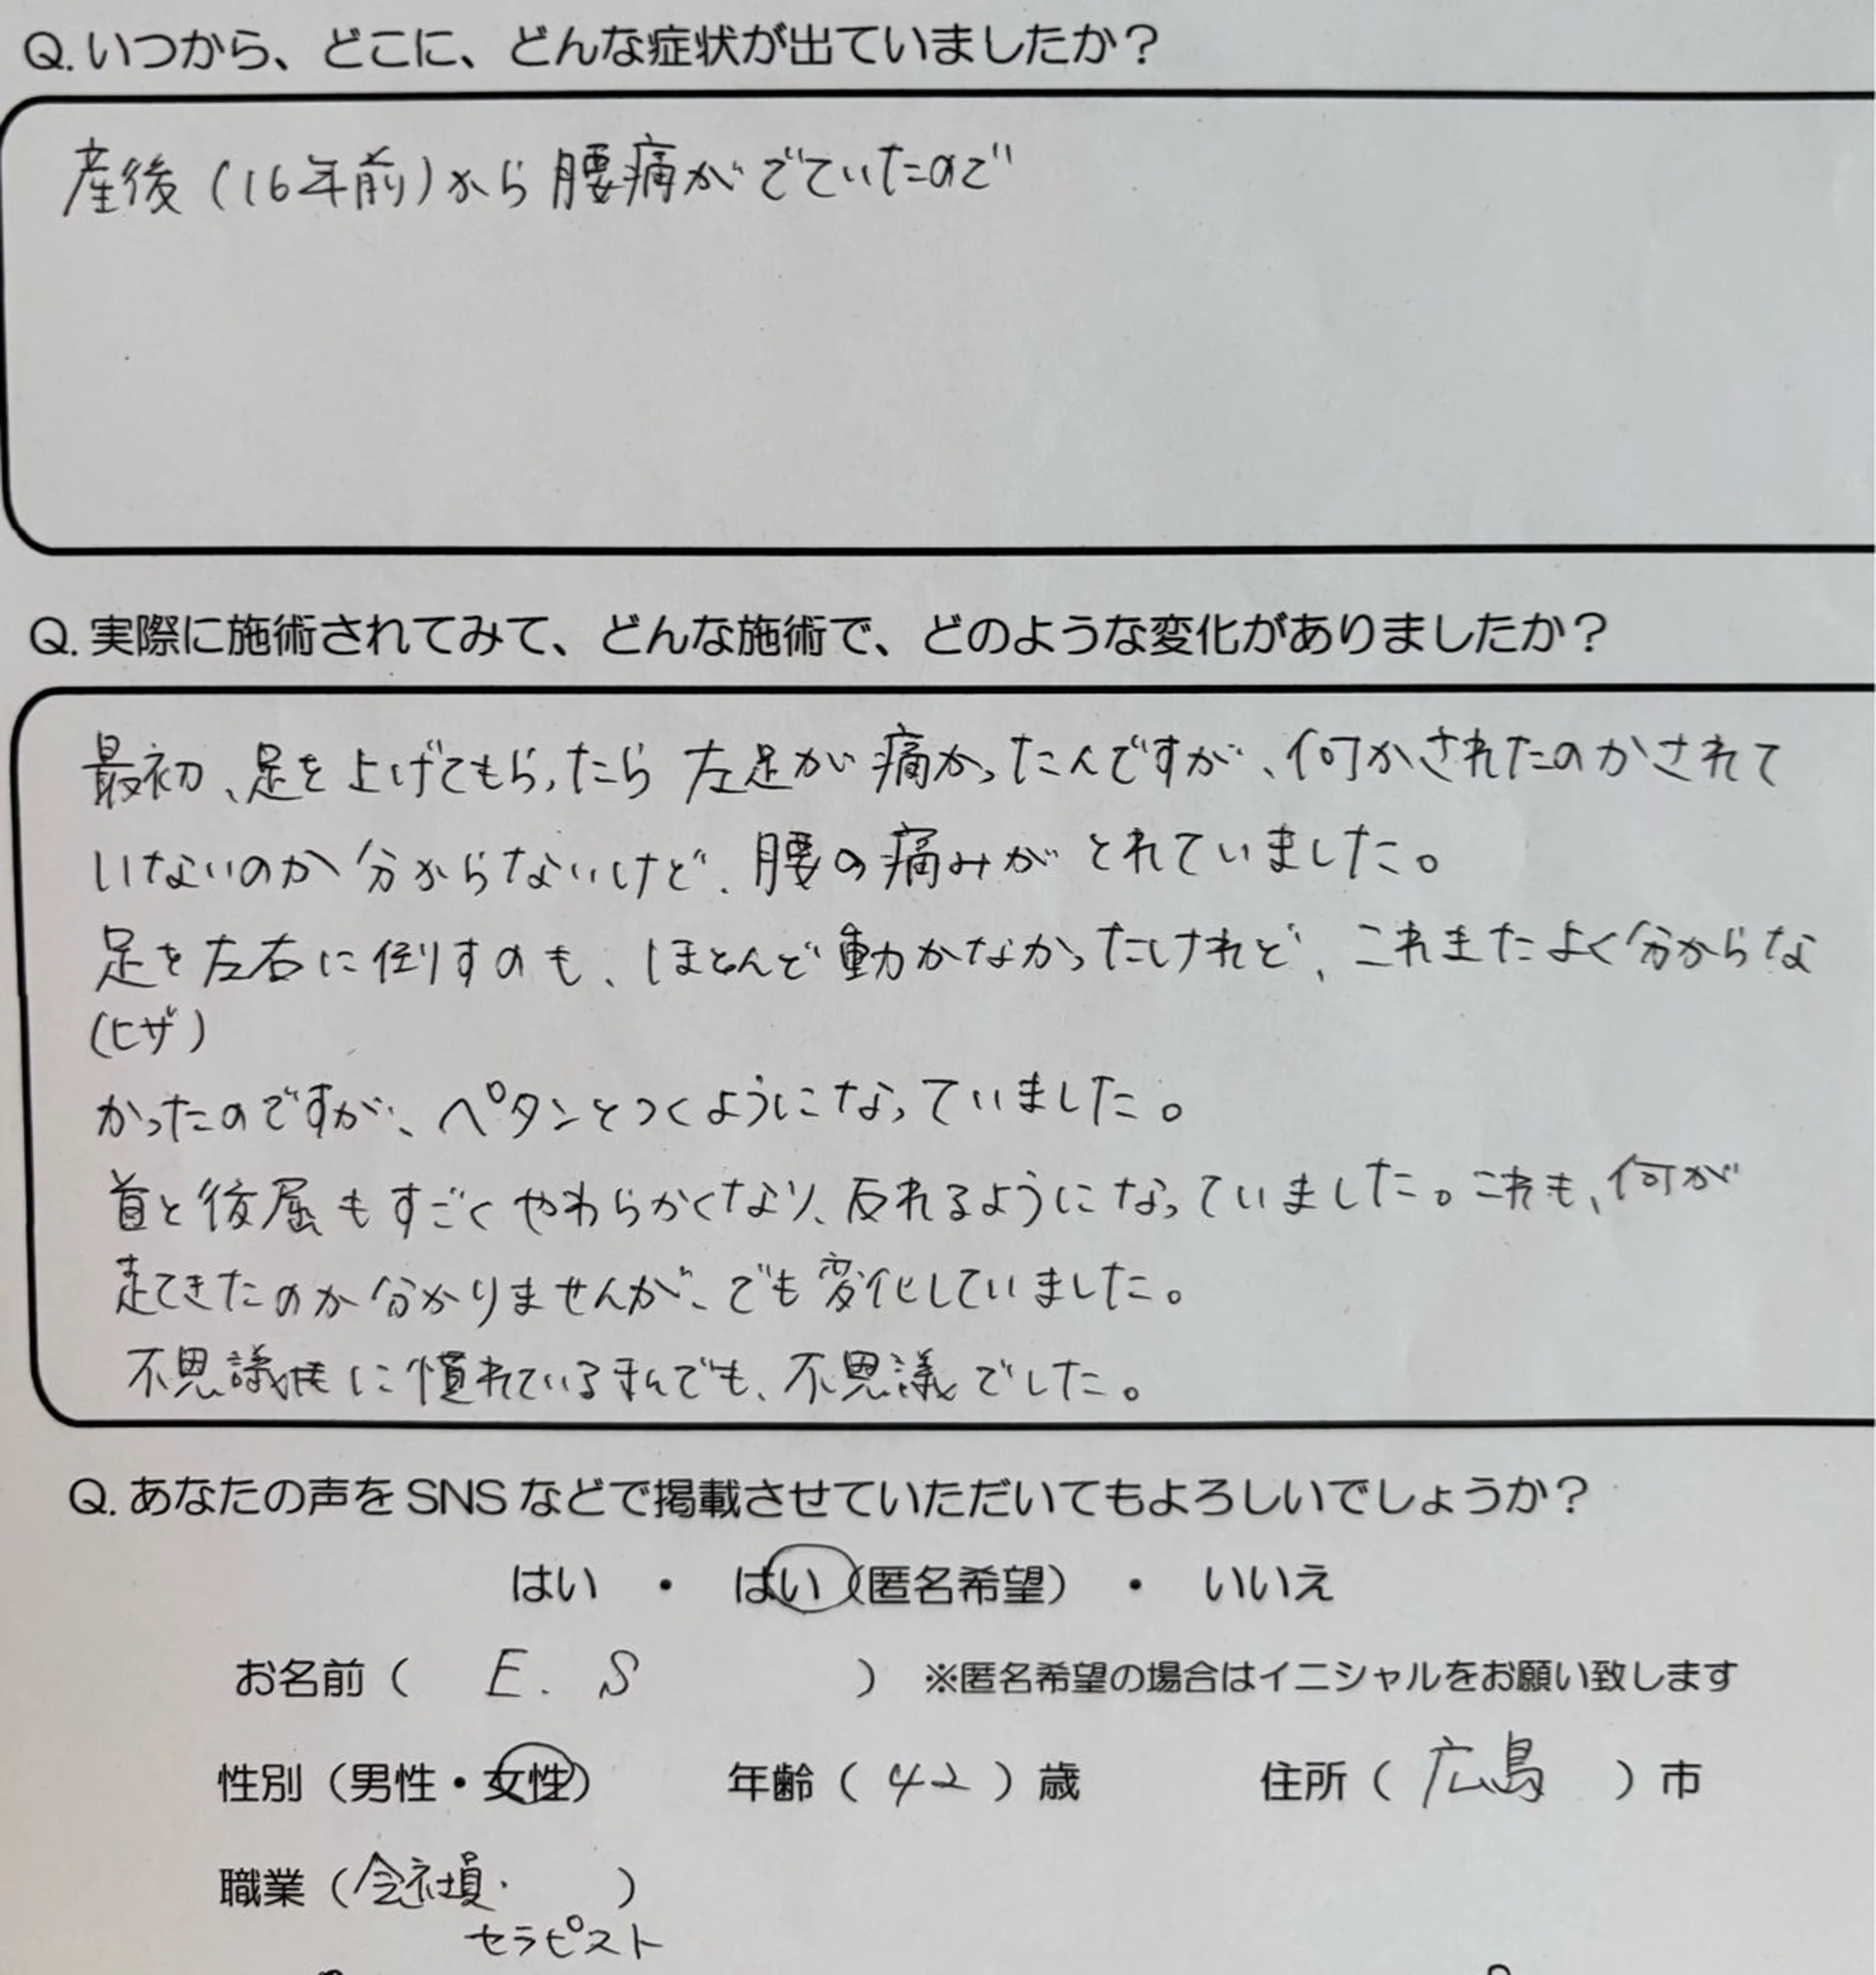 Q. いつから、どこに、どんな症状が出ていましたか？
産後（16年前）から腰痛がでていたので
Q. 実際に施術されてみて、どんな施術で、どのような変化がありましたか？
最初、足を上げてもらったら 左足が痛かったんですが、何かされたのかされて
いないのか分からないけど、腰の痛みがとれていました。
足を左右に倒すのも、ほとんど動かなかったけれど、これまたよく分からな
(ヒザ)
かったのですが、ペタンとつくようになっていました。
首と後屈もすごくやわらかくなり、反れるようになっていました。これも、何が
起てきたのか分かりませんが、でも変化していました。
不思議に慣れている でも、不思議でした。
Q. あなたの声をSNSなどで掲載させていただいてもよろしいでしょうか？
はい ・ はい（匿名希望） ・ いいえ
お名前（ E. S ） ※匿名希望の場合はイニシャルをお願い致します
性別（男性・女性） 年齢（ 42 ）歳 住所（ 広島 ）市
職業（会社員・ ）
セラピスト